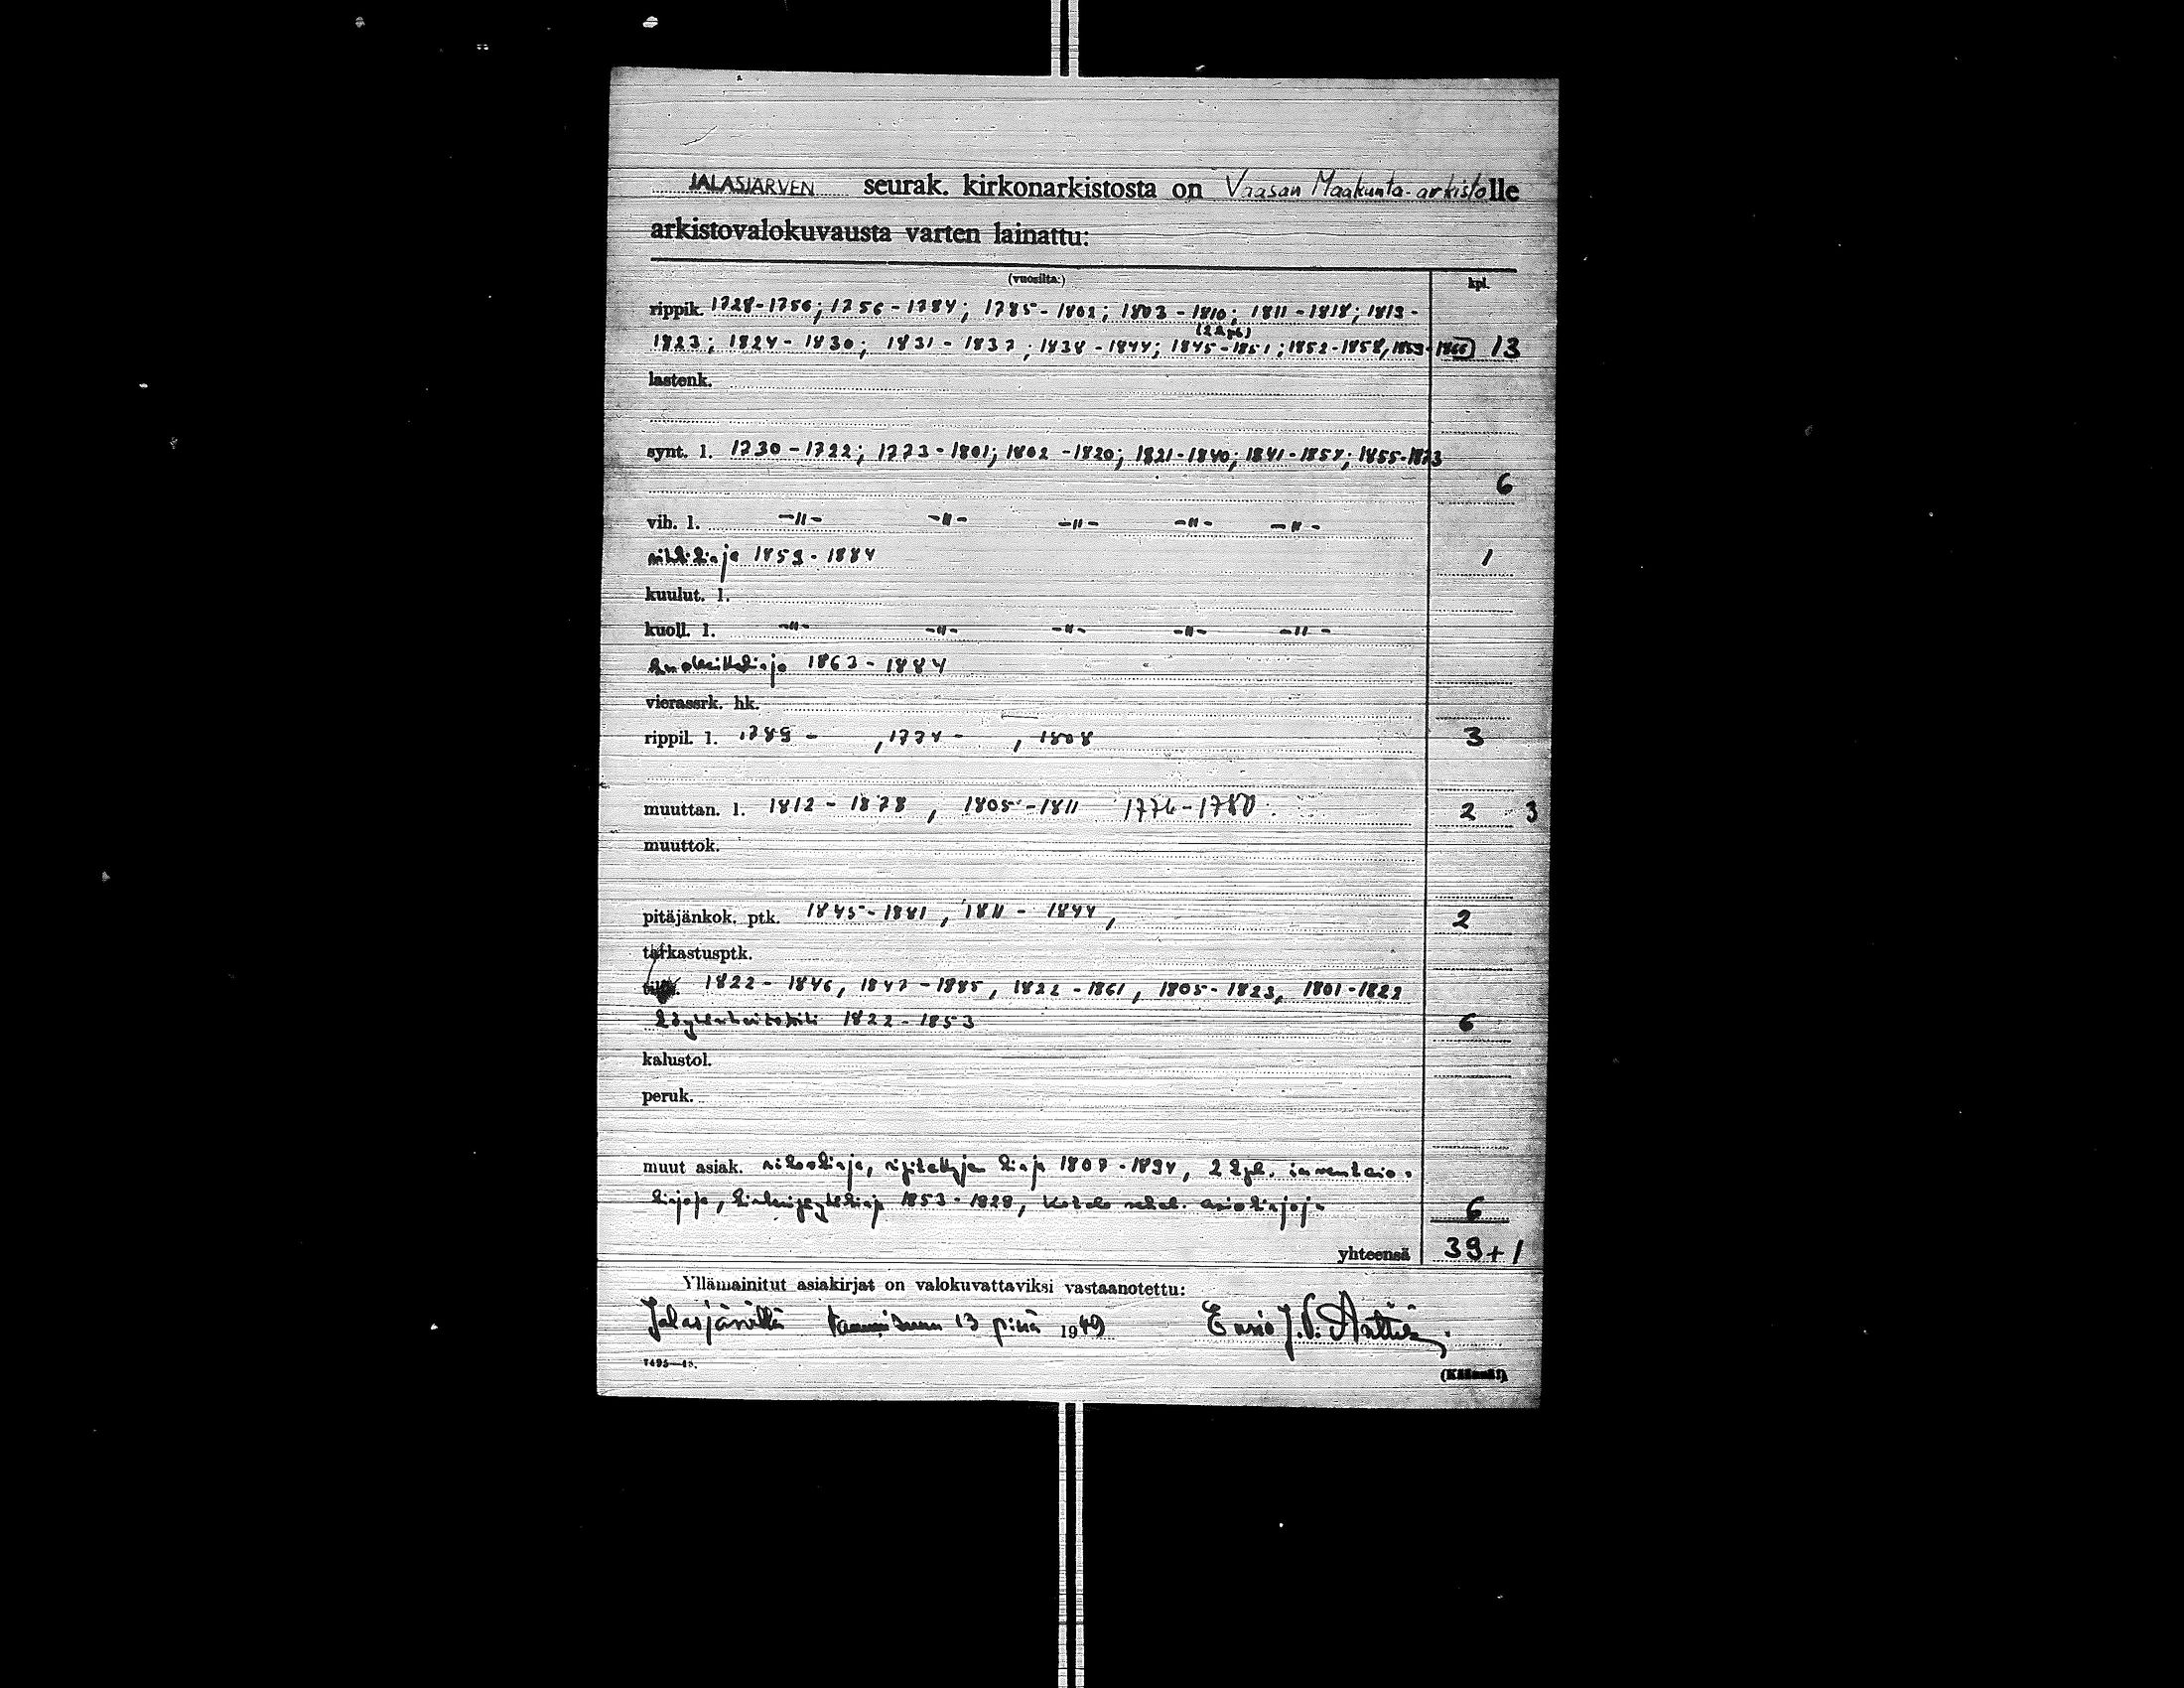 JALASJÄRVEN seurak. kirkonarkistosta on Vaasan Maakunta-arkistolle
arkistovalokuvausta varten lainattu:
(vuosilta:) kpl.
rippik. 1728-1756; 1756-1784; 1785-1802; 1803-1810; 1811-1818; 1813-
(2 kpl)
1823; 1824-1830; 1831-1837; 1838-1844; 1845-1851; 1852-1858, 1859-1866 13
lastenk.
synt. l. 1730-1722; 1773-1801; 1802-1820; 1821-1840; 1841-1854; 1855-1873
6
vih. l. -"- -"- -"- -"- -"-
vihkikirja 1859-1884 1
kuulut. l.
kuoll. l. -"- -"- -"- -"- -"-
1863-1884
vierassrk. hk.
rippil. l. 1789 - , 1774 - , 1808 3
muuttan. l. 1812-1878, 1805-1811 1776-1780. 2 3
muuttok.
pitäjänkok. ptk. 1845-1881, 1811-1844, 2
tarkastusptk.
1822-1846, 1847-1885, 1822-1861, 1805-1823, 1801-1822
1822-1853 6
kalustol.
peruk.
muut asiak. rikoskirja, ripitettyjen kirja 1808-1894, 2 kpl. inventaario-
kirjoja, 1853-1828, 6
yhteensä 39+1
Yllämainitut asiakirjat on valokuvattaviksi vastaanotettu:
Jalasjärvellä tammikuun 13 p:nä 1949 J.V.
7495—48.
(Käännä!)